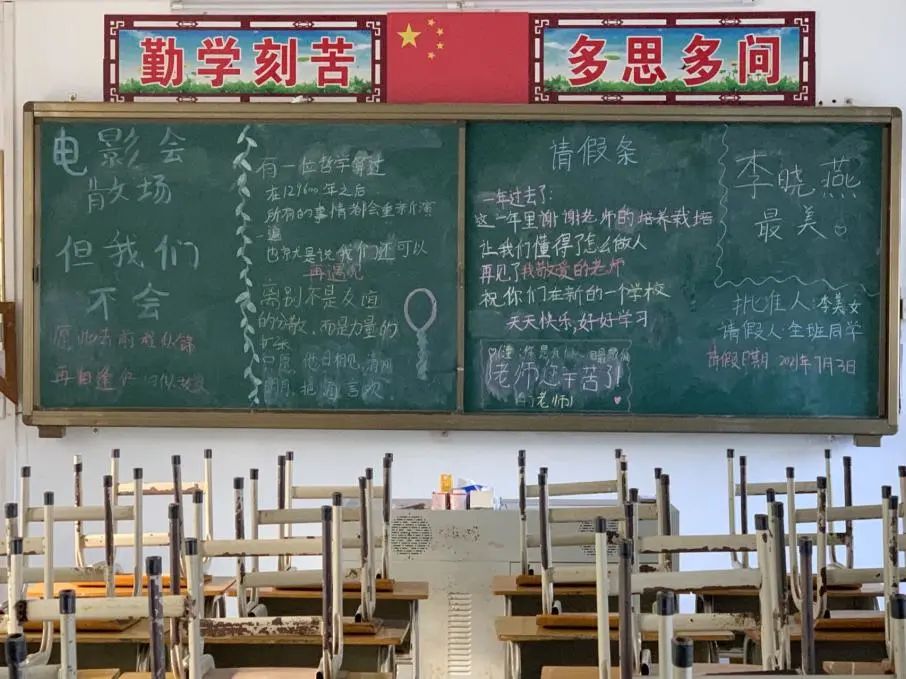 勤学刻苦
多思多问
电影会
散场
但我们
不会
再相逢
有一位哲学算过
在129600年之后
所有的事情都会重新演
一遍
也就是说我们还可以
再遇见
离别不是永恒
的分散,而是力量的
扩张
他日相见,清风
明月,把酒言欢
请假条
一年过去了:
这一年里谢谢老师的培养栽培
让我们懂得了怎么做人
再见了我敬爱的老师
祝你们在新的一个学校
天天快乐,好好学习
老师您辛苦了!
李晓燕
最美
批准人:李美女
请假人:全班同学
请假日期 2021年7月3日